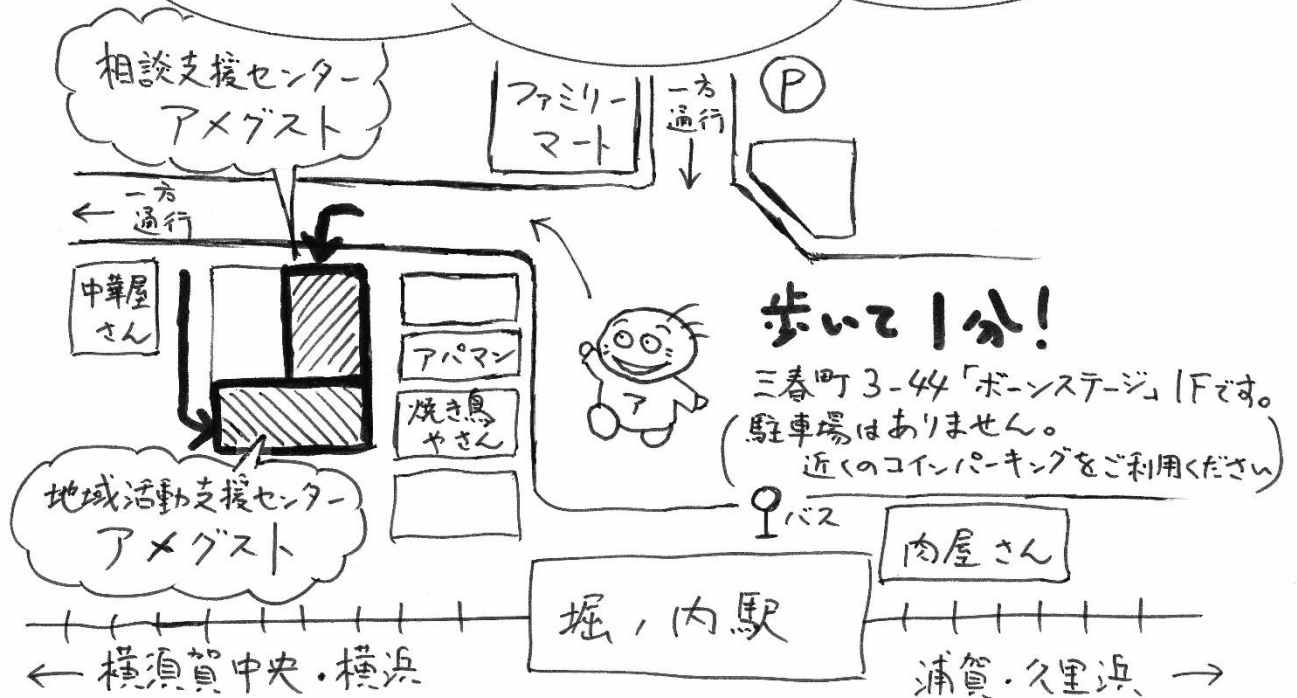 相談支援センター
アメグスト
ファミリー
マート
一方
通行
↓
P
← 一方
通行
中華屋
さん
アパマン
焼き鳥
やさん
ア
歩いて1分!
三春町3-44「ボーンステージ」1Fです。
(駐車場はありません。
近くのコインパーキングをご利用ください)
地域活動支援センター
アメグスト
バス
肉屋さん
堀ノ内駅
← 横須賀中央・横浜
浦賀・久里浜 →